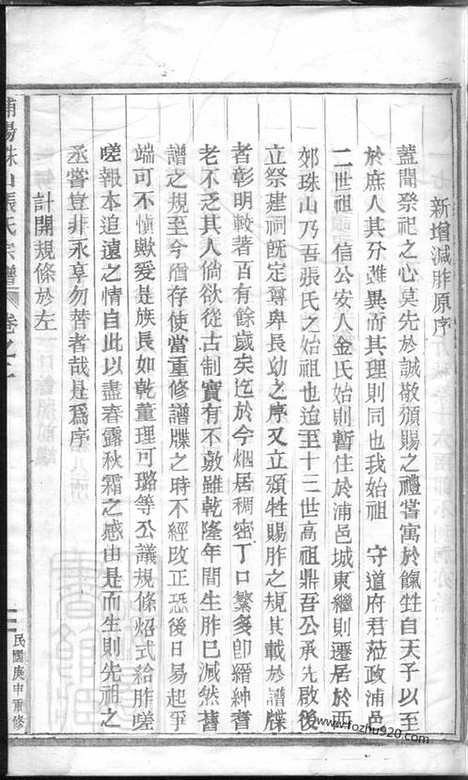 新增減胙原序
蓋聞祭祀之心莫先於誠敬頒賜之禮嘗寓於餼牲自天子以至
於庶人其分雖異而其理則同也我始祖 守道府君蒞政浦邑
二世祖 信公安人金氏始則暫住於浦邑城東繼則遷居於西
郊珠山乃吾張氏之始祖也迨至十三世高祖鼎吾公承先啟後
立祭建祠既定尊卑長幼之序又立頒牲賜胙之規其載於譜牒
者彰明較著百有餘歲矣迄於今烟居稠密丁口繁多即縉紳耆
老不乏其人倘欲從古制實有不敷雖乾隆年間生胙已減然舊
譜之規至今酋存使當重修譜牒之時不經改正恐後日易起爭
端可不慎歟爰是族長如乾董理可璐等公議規條炤式給胙嗟
嗟報本追遠之情自此以盡春露秋霜之感由是而生則先祖之
烝嘗豈非永享勿替者哉是爲序
計開規條於左
浦陽珠山張氏宗譜 卷之二
民國庚申重修
www.fozhu920.com